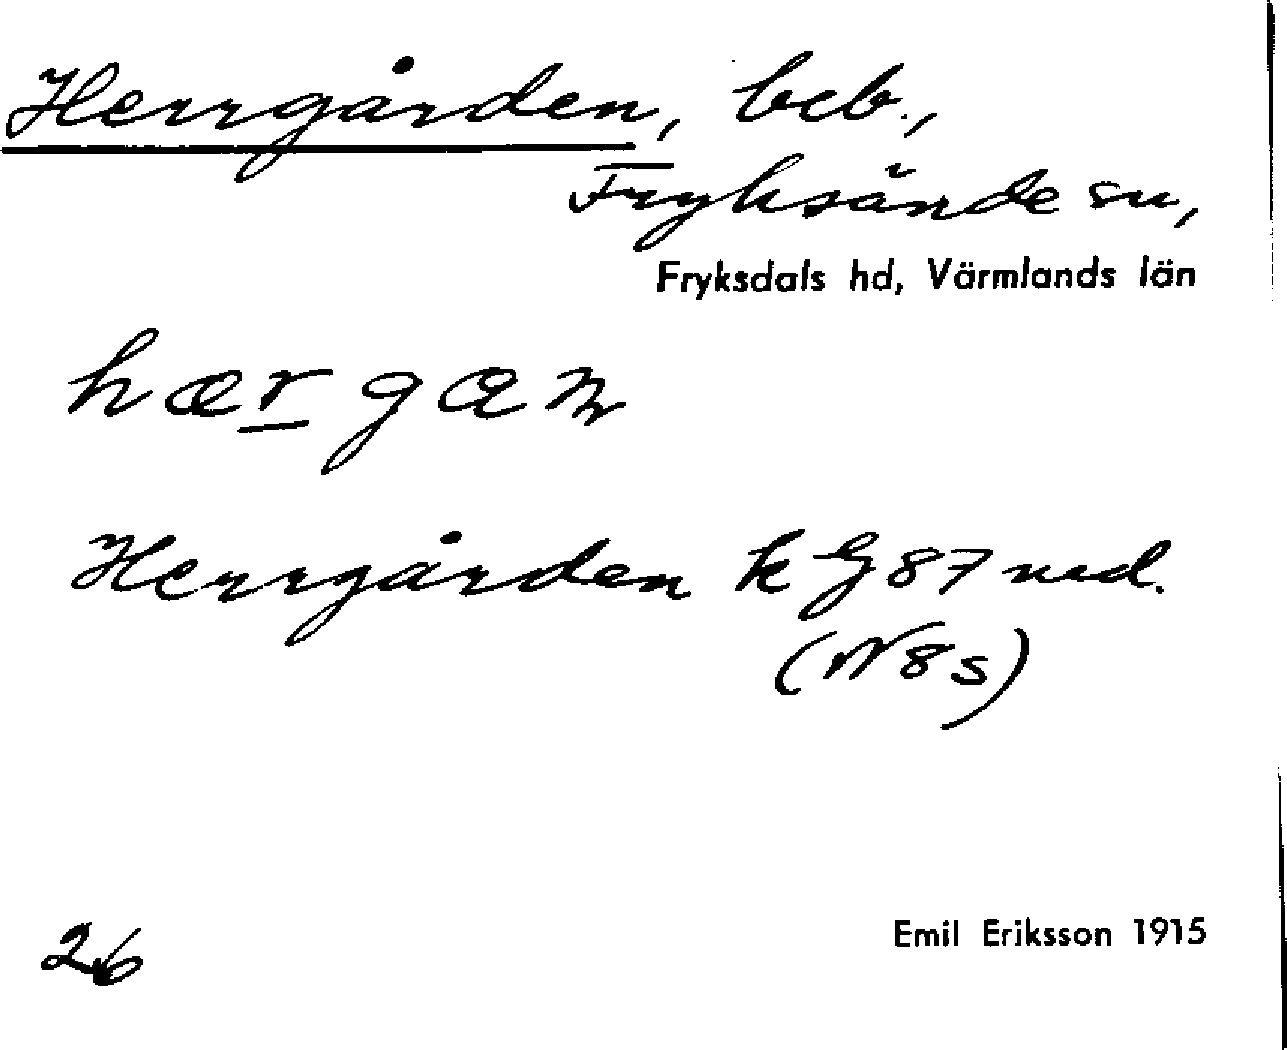 Herrgården, beb.,
Fryksände sn,
Fryksdals hd, Värmlands län
hærgaɳ
Herrgården k G 87 ned.
(N 8 s)
26
Emil Eriksson 1915